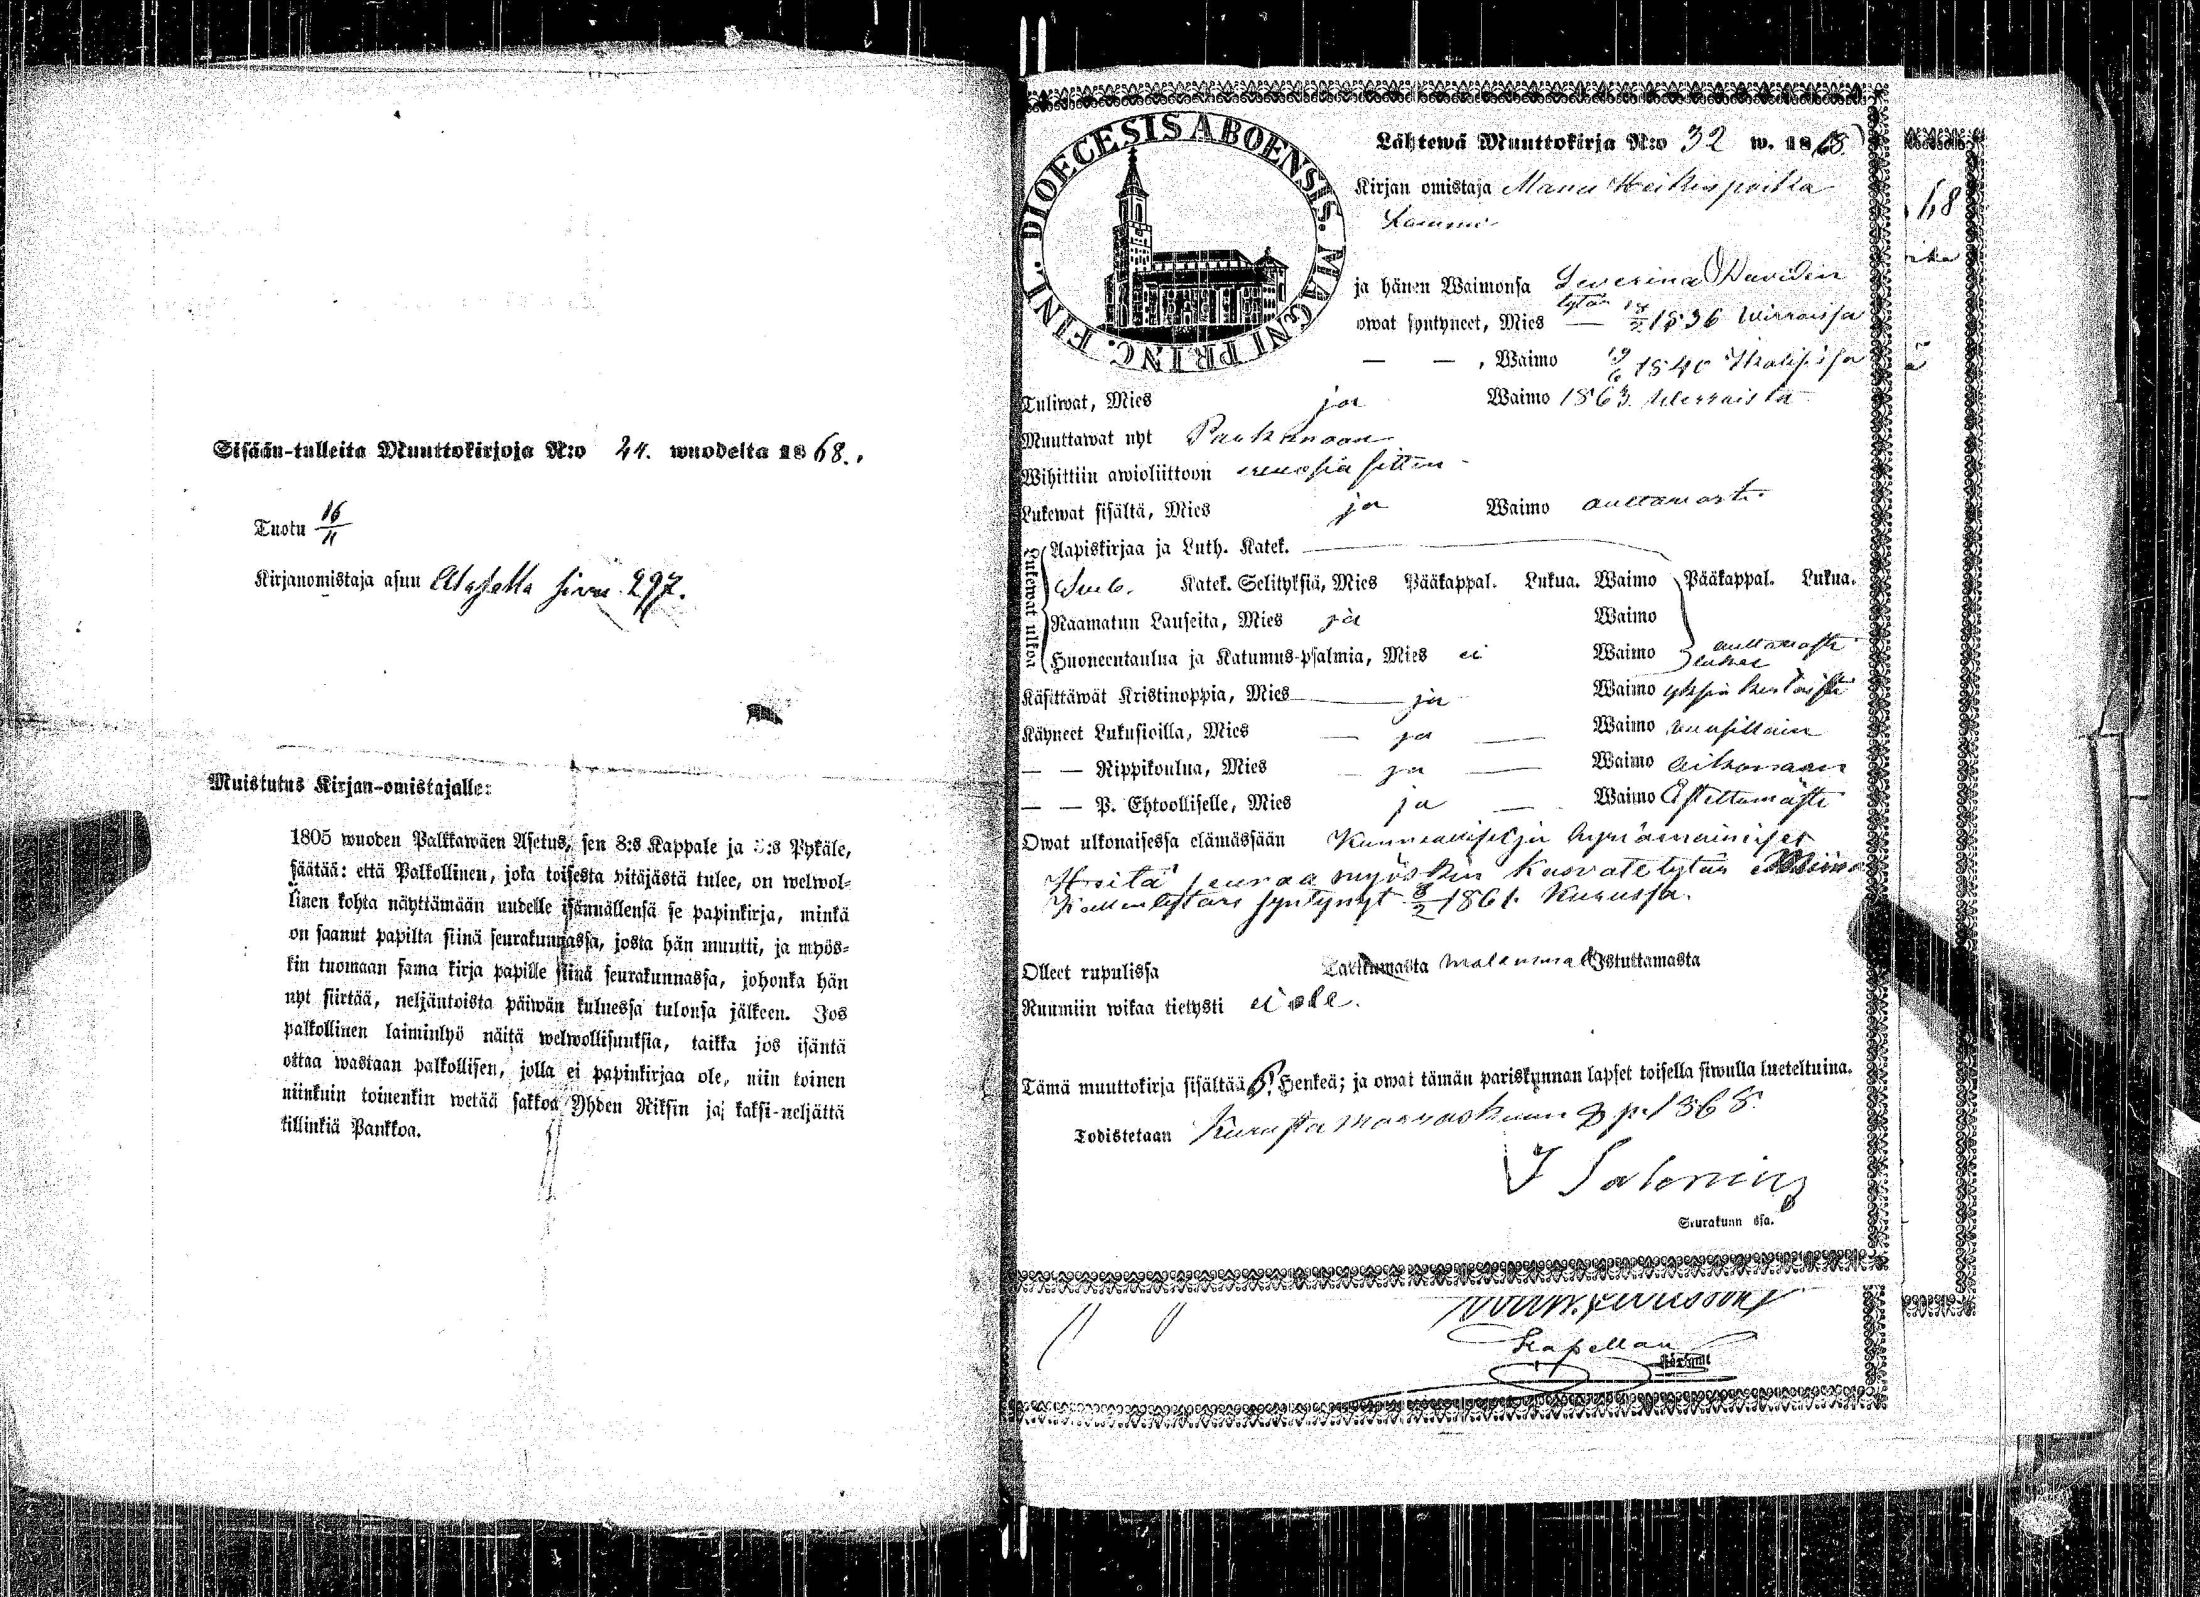 Sisään-tulleita Muuttokirjoja N:o 24. wuodelta 1868.
Tuotu 16/11
Kirjanomistaja asuu sivu 297.
Muistutus Kirjan-omistajalle:
1805 wuoden Palkkawäen Asetus, sen 3:s Kappale ja :s Pykäle,
säätää: että Palkollinen, joka toisesta pitäjästä tulee, on welwol-
linen kohta näyttämään uudelle isännällensä se papinkirja, minkä
on saanut papilta siinä seurakunnassa, josta hän muutti, ja myös-
kin tuomaan sama kirja papille siinä seurakunnassa, johonka hän
nyt siirtää, neljäntoista päiwän kuluessa tulonsa jälkeen. Jos
palkollinen laiminlyö näitä welwollisuuksia, taikka jos isäntä
ottaa wastaan palkollisen, jolla ei papinkirjaa ole, niin toinen
niinkuin toinenkin wetää sakkoa Yhden Riksin ja kaksi-neljättä
killinkiä Pankkoa.
DIOECESIS ABOENSIS. MAGNI PRINC. FINL.
Lähtewä Muuttokirja N:o 32 w. 1868
Kirjan omistaja Manu Heikinpoika
ja hänen Waimonsa Severina Davidin
tytär
owat syntyneet, Mies — 1836 Wirroissa
— — , Waimo 19/6 1840 Ikalissa
Tuliwat, Mies ja Waimo 1863 Wirroista
Muuttawat nyt Parkanoon
Wihittiin awioliittoon vuosia sitten
Lukewat sisältä, Mies ja Waimo auttavasti
Lukewat ulkoa
Aapiskirjaa ja Luth. Katek.
Katek. Selityksiä, Mies Pääkappal. Lukua. Waimo Pääkappal. Lukua.
Raamatun Lauseita, Mies ja Waimo
Huoneentaulua ja Katumus-psalmia, Mies ei Waimo auttavasti
lukee
Käsittäwät Kristinoppia, Mies ja Waimo yksinkertaisesti
Käyneet Lukusioilla, Mies — ja — Waimo vuosittain
— — Rippikoulua, Mies — ja — Waimo aikanaan
— — P. Ehtoolliselle, Mies ja — Waimo Estettömästi
Owat ulkonaisessa elämässään Kunnialliset ja hyvämainiset
Heitä seuraa myöskin Kasvatetytär Miina
Kallentytär syntynyt 1861 Kurussa.
Olleet rupulissa Tarttumasta molemmat Istuttamasta
Ruumiin wikaa tietysti ei ole.
Tämä muuttokirja sisältää 6. Henkeä; ja owat tämän pariskunnan lapset toisella siwulla lueteltuina.
Todistetaan Kurusta marraskuun 8 p. 1868.
Seurakunn ssa.
Kapellan
68